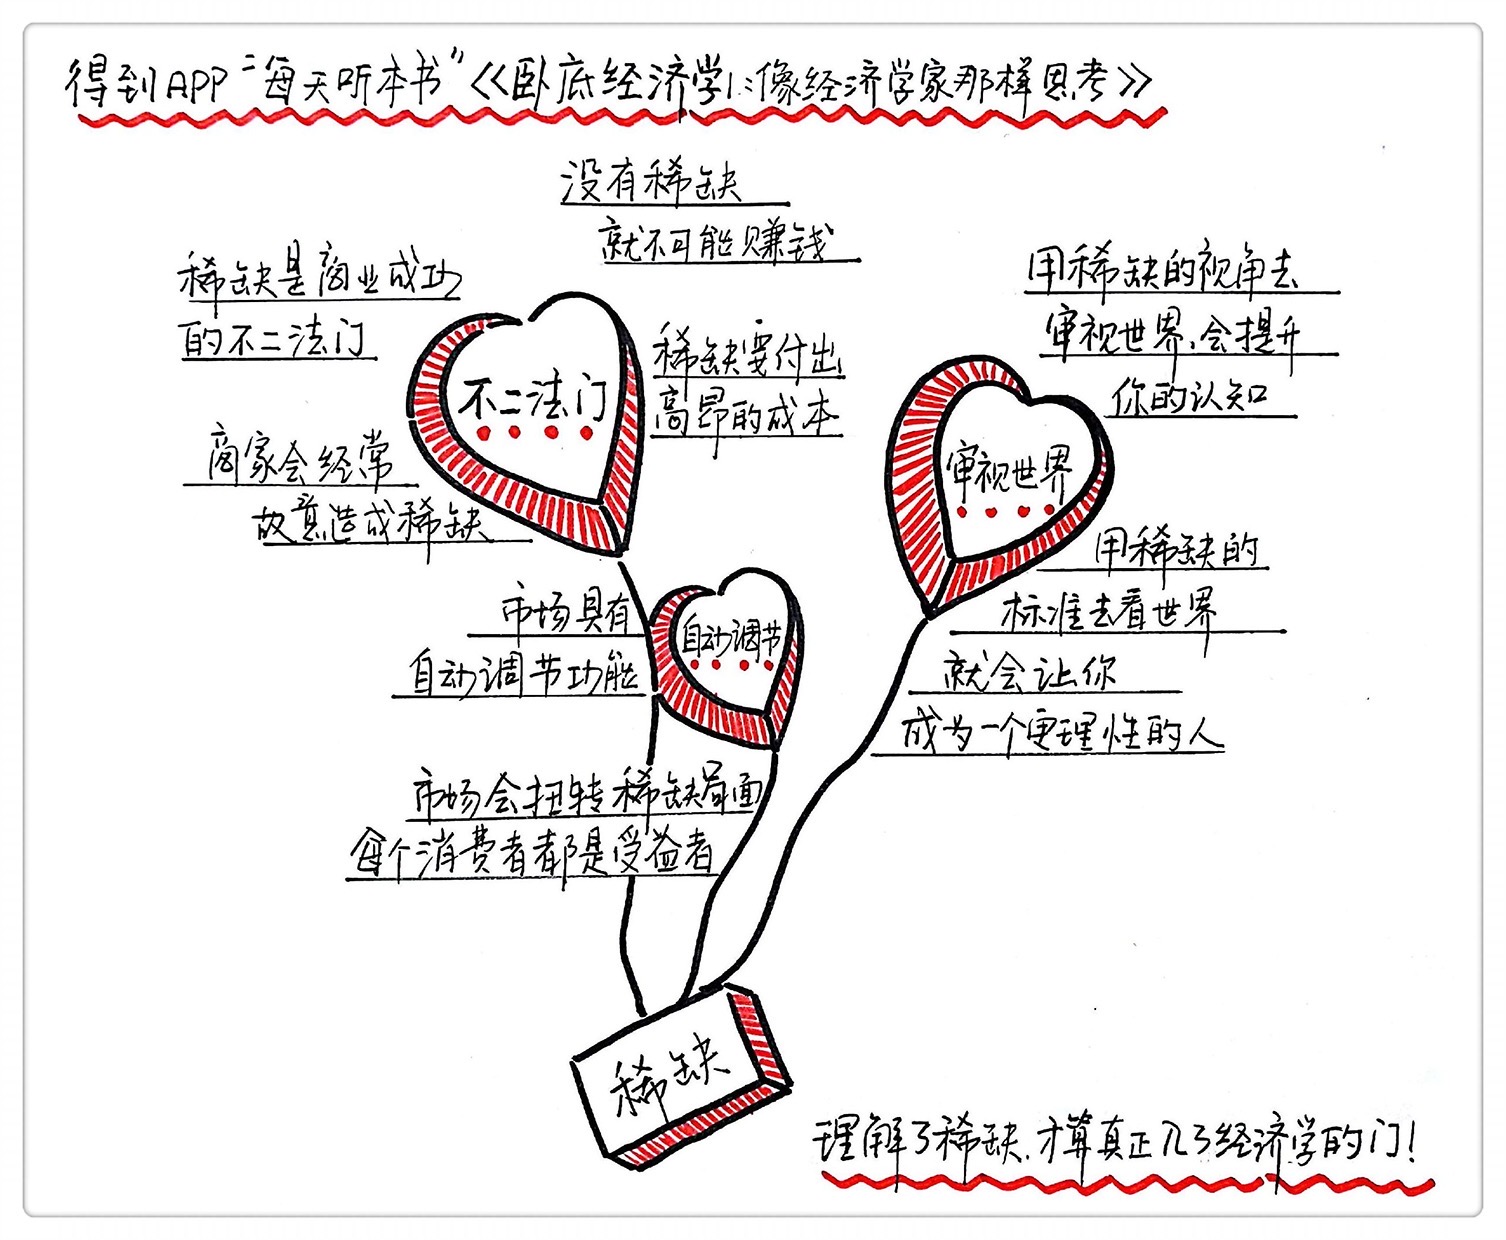 得到APP“每天听本书”《卧底经济学1:像经济学家那样思考》
没有稀缺
就不可能赚钱
稀缺是商业成功
的不二法门
不二法门
稀缺要付出
高昂的成本
商家会经常
故意造成稀缺
用稀缺的视角去
审视世界,会提升
你的认知
审视世界
用稀缺的
标准去看世界
就会让你
成为一个更理性的人
市场具有
自动调节功能
自动调节
市场会扭转稀缺局面
每个消费者都是受益者
稀缺
理解了稀缺,才算真正入了经济学的门!